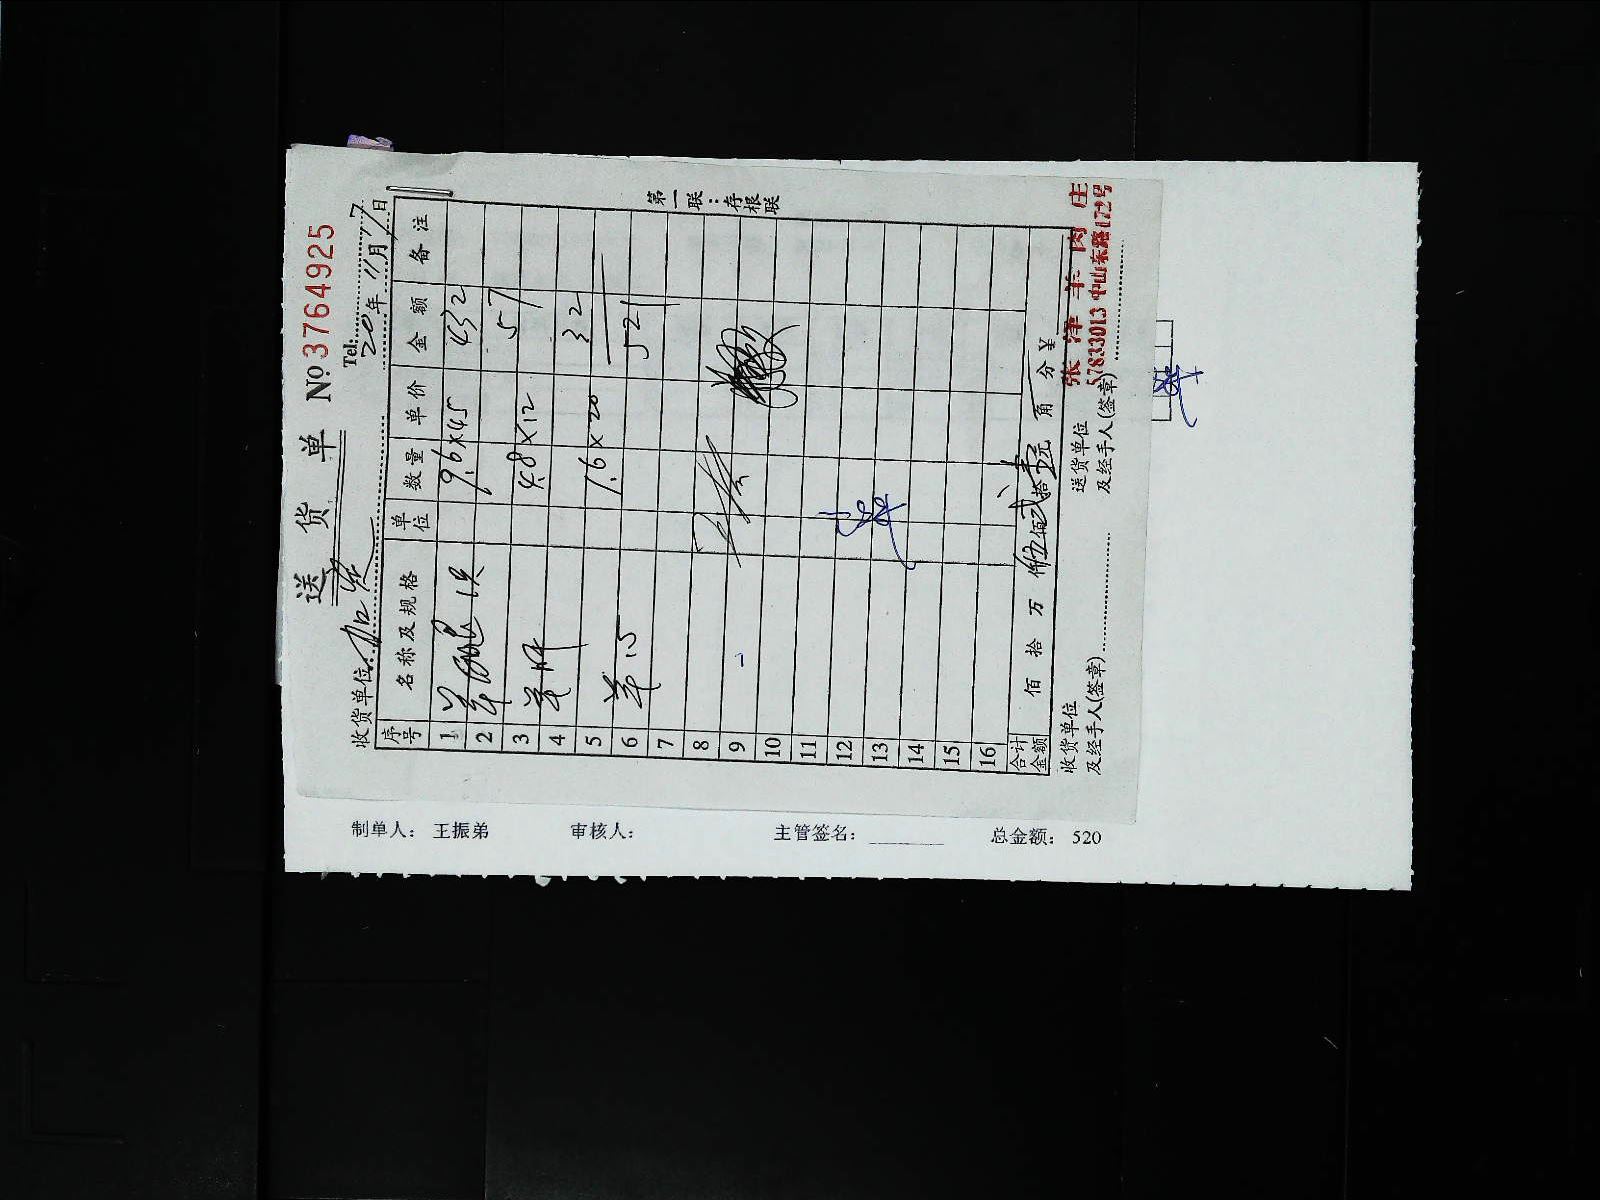 送货单 № 3764925
Tel:
收货单位
20 年 11 月 17 日
序号 名称及规格 单位 数量 单价 金额 备注
1 羊腿 9.6×45 432
2
3 羊肝 4.8×12 57
4
5 羊心 1.6×20 32
6 521
7
8
9
10
11
12
13
14
15
16
合计金额 佰 拾 万 仟 伍佰 贰拾 壹元 角 分 ¥
收货单位及经手人(签章)
送货单位及经手人(签章)
张泽羊肉庄
57833013 中山东路172号
第一联:存根联
制单人: 王振弟 审核人: 主管签名: 总金额: 520